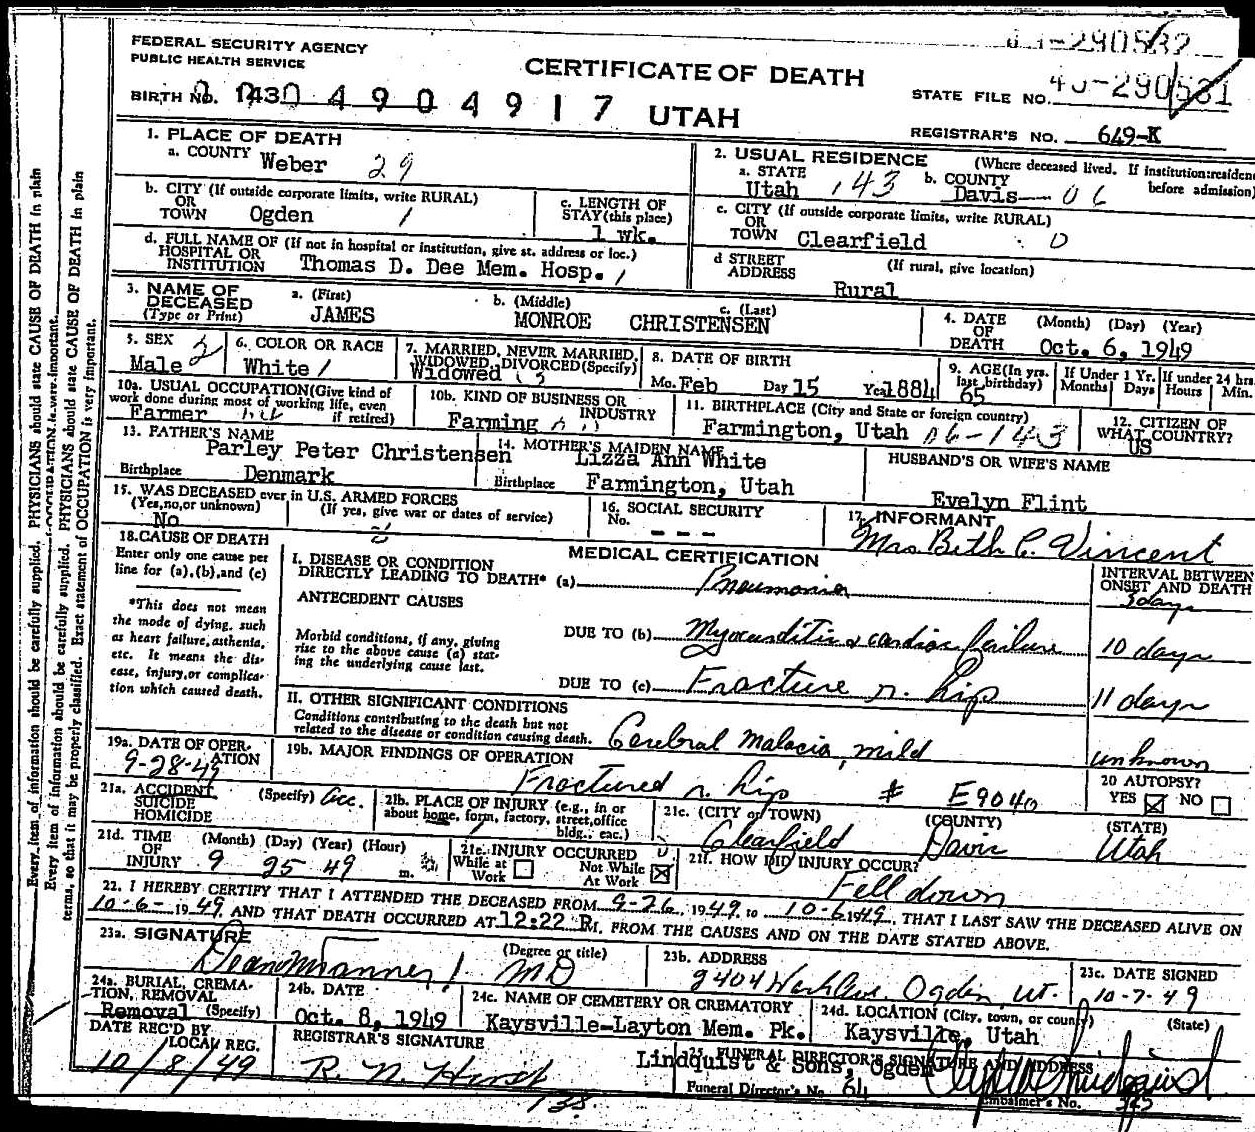 -290532
FEDERAL SECURITY AGENCY
PUBLIC HEALTH SERVICE
CERTIFICATE OF DEATH
STATE FILE NO. -290531
BIRTH NO. 1430 4904917
UTAH
REGISTRAR'S NO. 649-K
1. PLACE OF DEATH
a. COUNTY Weber 29
2. USUAL RESIDENCE (Where deceased lived. If institution:residen
before admission)
a. STATE Utah 143 b. COUNTY Davis 06
b. CITY (If outside corporate limits, write RURAL)
OR
TOWN Ogden 1
c. LENGTH OF
STAY (this place)
1 wk.
c. CITY (If outside corporate limits, write RURAL)
OR
TOWN Clearfield 0
d. FULL NAME OF (If not in hospital or institution, give st. address or loc.)
HOSPITAL OR
INSTITUTION Thomas D. Dee Mem. Hosp.
d STREET
ADDRESS (If rural, give location)
Rural
3. NAME OF
DECEASED
(Type or Print)
a. (First) JAMES
b. (Middle) MONROE
c. (Last) CHRISTENSEN
4. DATE
OF
DEATH
(Month) (Day) (Year)
Oct. 6, 1949
5. SEX
Male 2
6. COLOR OR RACE
White 1
7. MARRIED, NEVER MARRIED,
WIDOWED, DIVORCED (Specify)
Widowed
8. DATE OF BIRTH
Mo. Feb Day 15 Year 1884
9. AGE (In yrs.
last birthday)
65
If Under 1 Yr.
Months Days
If under 24 hrs
Hours Min.
10a. USUAL OCCUPATION (Give kind of
work done during most of working life, even
if retired)
Farmer
10b. KIND OF BUSINESS OR
INDUSTRY
Farming
11. BIRTHPLACE (City and State or foreign country)
Farmington, Utah 06-143
12. CITIZEN OF
WHAT COUNTRY?
US
13. FATHER'S NAME
Parley Peter Christensen
Birthplace Denmark
14. MOTHER'S MAIDEN NAME
Lizza Ann White
Birthplace Farmington, Utah
HUSBAND'S OR WIFE'S NAME
Evelyn Flint
15. WAS DECEASED ever in U.S. ARMED FORCES
(Yes, no, or unknown) (If yes, give war or dates of service)
No
16. SOCIAL SECURITY
No. - - -
17. INFORMANT
Mrs. Beth C. Vincent
18. CAUSE OF DEATH
Enter only one cause per
line for (a), (b), and (c)
*This does not mean
the mode of dying, such
as heart failure, asthenia,
etc. It means the dis-
ease, injury, or complica-
tion which caused death.
MEDICAL CERTIFICATION
INTERVAL BETWEEN
ONSET AND DEATH
I. DISEASE OR CONDITION
DIRECTLY LEADING TO DEATH* (a) Pneumonia 3 days
ANTECEDENT CAUSES
Morbid conditions, if any, giving
rise to the above cause (a) stat-
ing the underlying cause last.
DUE TO (b) Myocarditis & cardiac failure 10 days
DUE TO (c) Fracture r. hip 11 days
II. OTHER SIGNIFICANT CONDITIONS
Conditions contributing to the death but not
related to the disease or condition causing death.
Cerebral Malacia, mild unknown
19a. DATE OF OPER-
ATION
9-28-49
19b. MAJOR FINDINGS OF OPERATION
Fractured r. hip # E9040
20 AUTOPSY?
YES ☒ NO ☐
21a. ACCIDENT
SUICIDE
HOMICIDE
(Specify) acc.
21b. PLACE OF INJURY (e.g., in or
about home, form, factory, street, office
bldg., eac.)
21c. (CITY or TOWN) (COUNTY) (STATE)
Clearfield Davis Utah
21d. TIME
OF
INJURY
(Month) (Day) (Year) (Hour)
9 25 49 m.
21e. INJURY OCCURRED
While at
Work ☐
Not While
At Work ☒
21f. HOW DID INJURY OCCUR?
Fell down
22. I HEREBY CERTIFY THAT I ATTENDED THE DECEASED FROM 9-26, 1949, to 10-6 1949, THAT I LAST SAW THE DECEASED ALIVE ON
10-6- 1949, AND THAT DEATH OCCURRED AT 12:22 P.M., FROM THE CAUSES AND ON THE DATE STATED ABOVE.
23a. SIGNATURE (Degree or title)
MD
23b. ADDRESS
2404 Wash Ave Ogden, Ut.
23c. DATE SIGNED
10-7-49
24a. BURIAL, CREMA-
TION, REMOVAL
Removal (Specify)
24b. DATE
Oct. 8, 1949
24c. NAME OF CEMETERY OR CREMATORY
Kaysville-Layton Mem. Pk.
24d. LOCATION (City, town, or county) (State)
Kaysville, Utah
DATE REC'D BY
LOCAL REG.
10/8/49
REGISTRAR'S SIGNATURE
R. N. Hirst
25. FUNERAL DIRECTOR'S SIGNATURE AND ADDRESS
Lindquist & Sons, Ogden
Funeral Director's No. 64
Embalmer's No. 375
138
Every item of information should be carefully supplied. PHYSICIANS should state CAUSE OF DEATH in plain
Every item of information should be carefully supplied. PHYSICIANS should state CAUSE OF DEATH in plain
terms, so that it may be properly classified. Exact statement of OCCUPATION is very important.